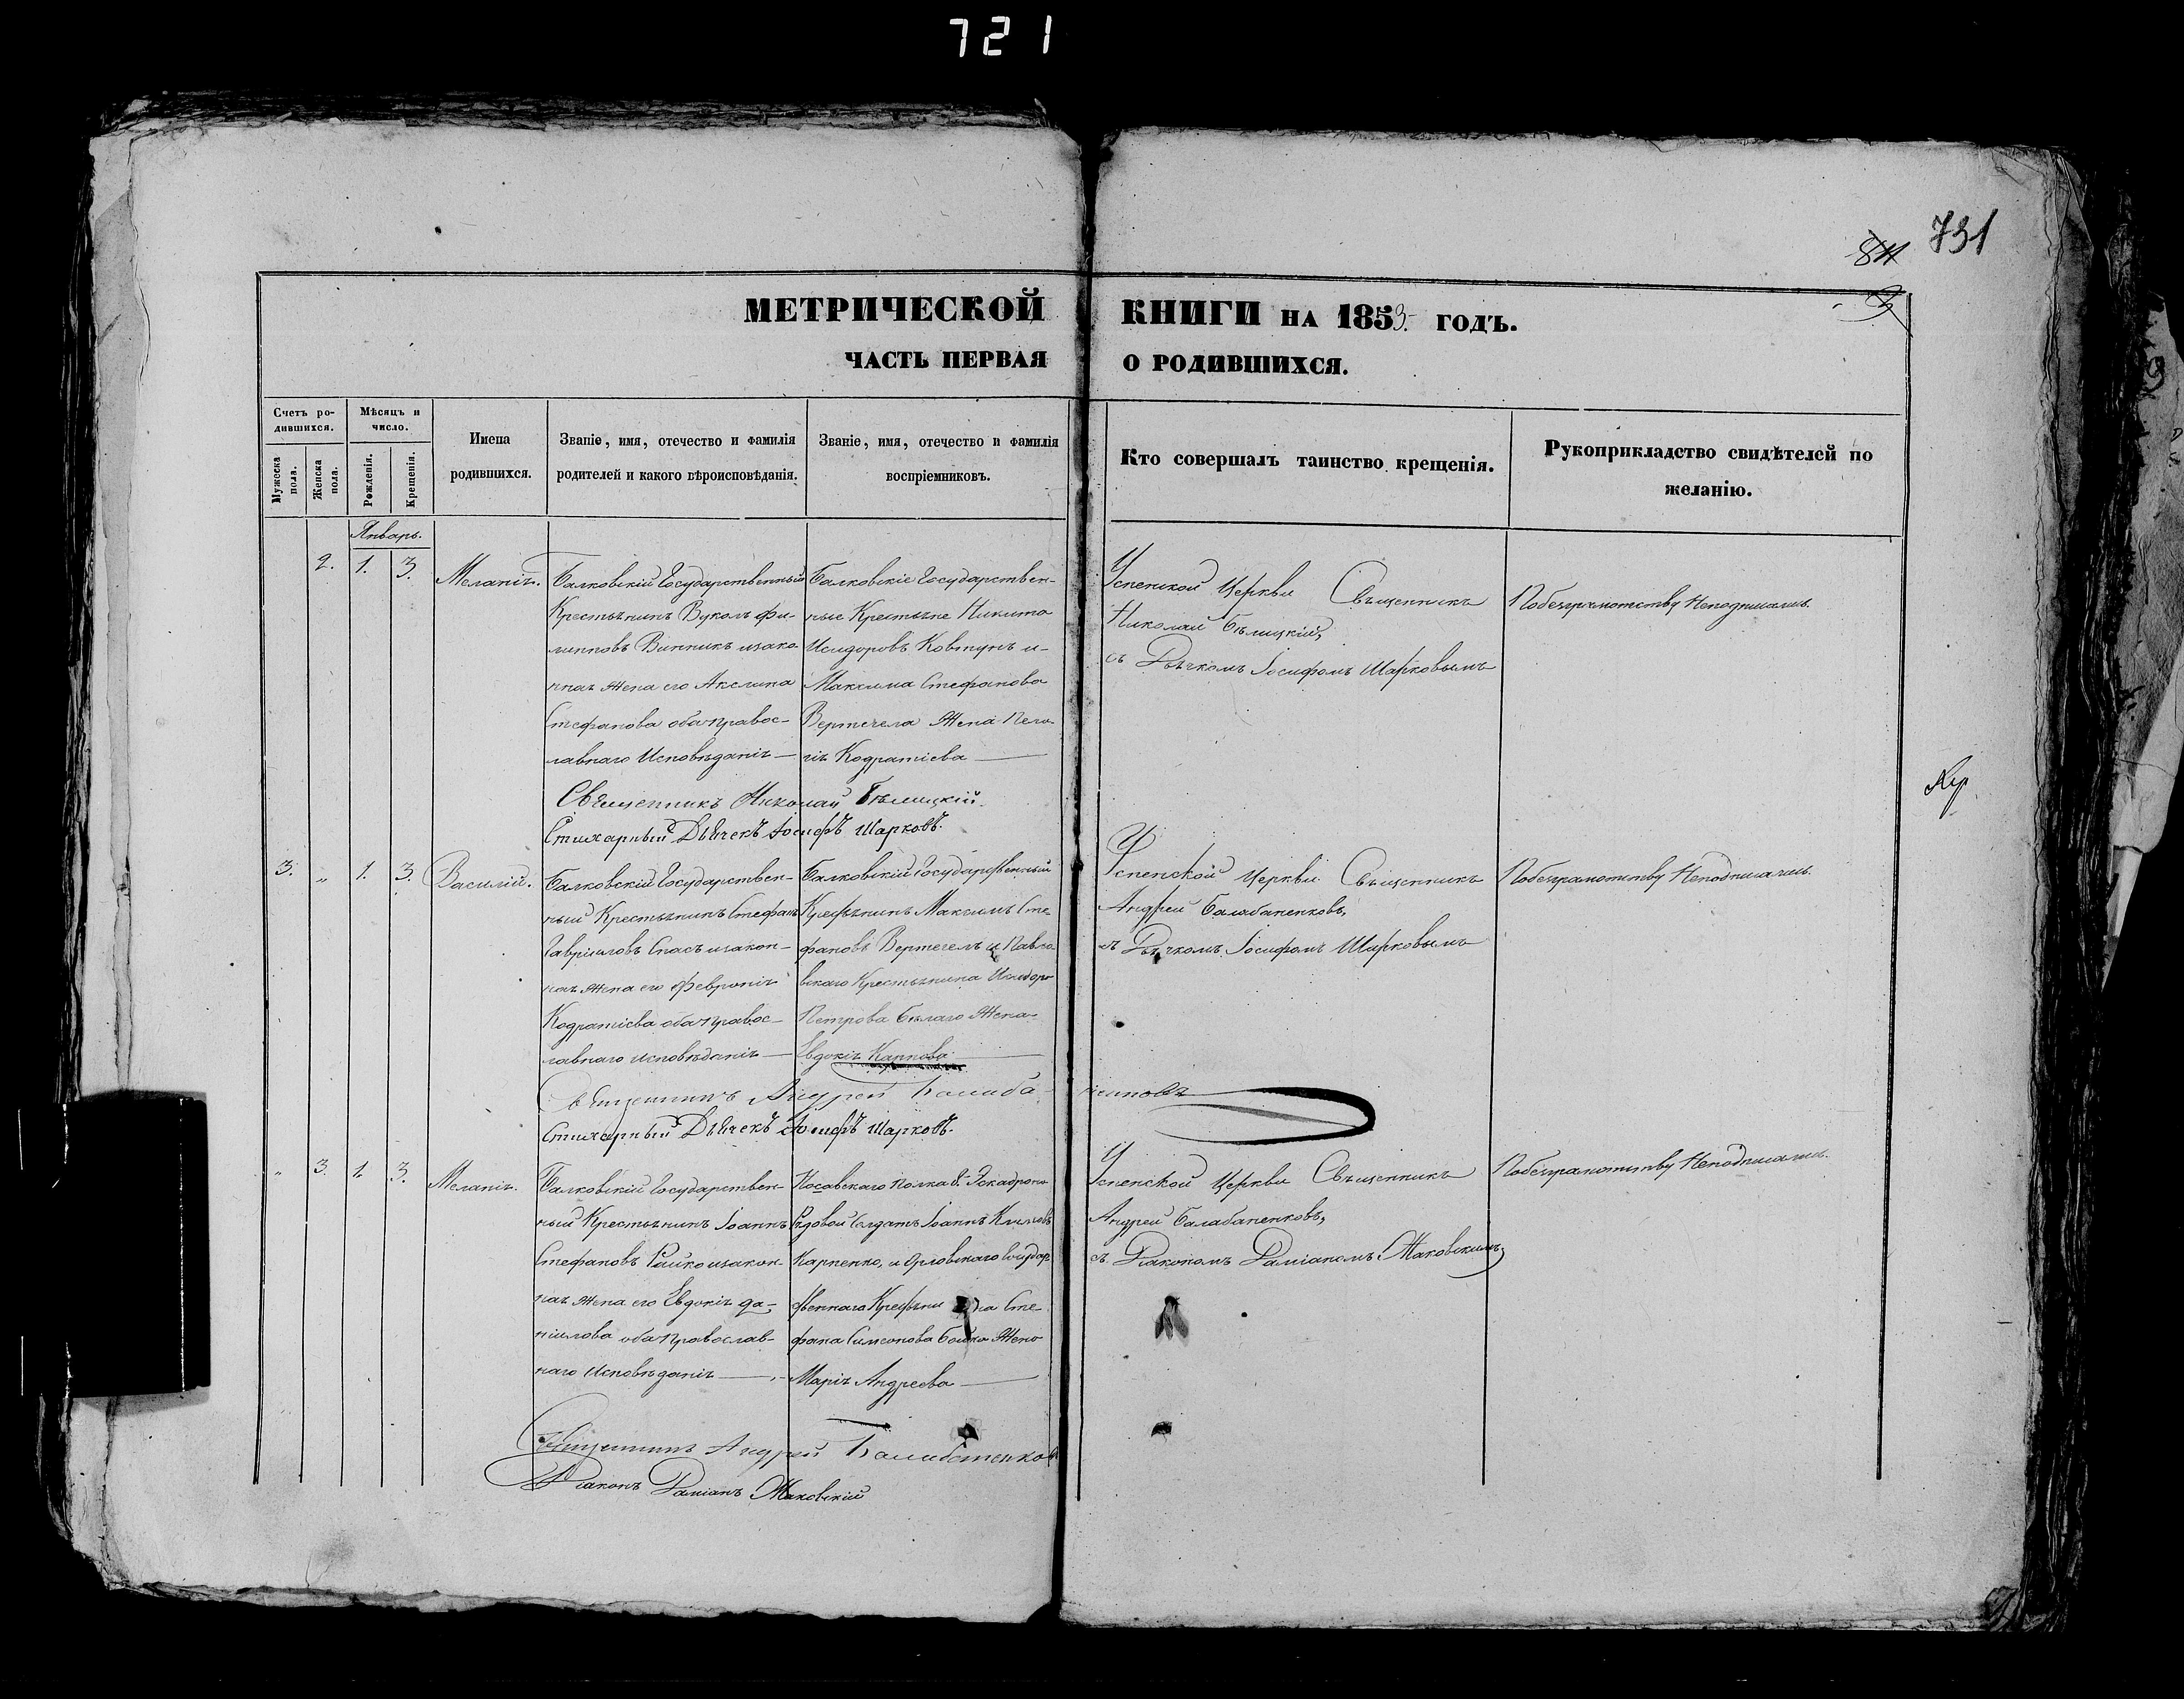 721
731
84
3
МЕТРИЧЕСКОЙ КНИГИ НА 1853. ГОДЪ.
ЧАСТЬ ПЕРВАЯ О РОДИВШИХСЯ.
Счетъ ро-
дившихся.
Мужеска пола.
Женска пола.
Мѣсяцъ и
число.
Рожденія.
Крещенія.
Имена
родившихся.
Званіе, имя, отечество и фамилія
родителей и какого вѣроисповѣданія.
Званіе, имя, отечество и фамилія
воспріемниковъ.
Кто совершалъ таинство крещенія.
Рукоприкладство свидѣтелей по
желанію.
Январь.
2. 1. 3.
Меланія.
Балковскій Государственный
Крестьянинъ Вуколъ Фи-
липповъ Винникъ изако-
нная жена его Акелина
Стефанова оба правос-
лавнаго Исповѣданія
Балковскіе Государствен-
ные Крестьяне Никита
Исидоровъ Ковтунъ и-
Максима Стефанова
Вертегела Жена Пела-
гія Кодратіева
Успенской Церкви Священникъ
Николай Бѣлицкій,
съ Дьячкомъ Іосифомъ Шарковымъ
Побезграмотству Неподписались.
Священникъ Николай Бѣлицкій.
Стихарный Дьячекъ Іосифъ Шарковъ.
3. „ 1. 3.
Василій.
Балковскій Государствен-
ный Крестьянинъ Стефанъ
Гавріиловъ Спасъ изакон-
ная жена его Февронія
Кодратіева оба правос-
лавнаго исповѣданія
Балковскій Государственный
Крестьянинъ Максимъ Сте-
фановъ Вертегелъ и Павло-
вскаго Крестьянина Исидора
Петрова Бѣлаго Жена
Евдокія Карпова
Успенской Церкви Священникъ
Андрей Балабаненковъ,
съ Дьячкомъ Іосифомъ Шарковымъ
Побезграмотству Неподписались.
Священникъ Андрей Балабаненковъ
Стихарный Дьячекъ Іосифъ Шарковъ.
„ 3. 1. 3.
Меланія.
Балковскій Государствен-
ный Крестьянинъ Іоаннъ
Стефановъ Райко изакон-
ная жена его Евдокія Да-
ніилова оба православ-
наго Исповѣданія
Полка Эскадрона
Рядовой Солдатъ Іоаннъ Климовъ
Карпенко, и Орловскаго Государ-
ственнаго Крестьянина Сте-
фана Симеонова Бойко Жена
Марія Андреева
Успенской Церкви Священникъ
Андрей Балабаненковъ,
съ Діакономъ Даміаномъ Маковскимъ
Побезграмотству Неподписались.
Священникъ Андрей Балабаненковъ
Діаконъ Даміанъ Маковскій